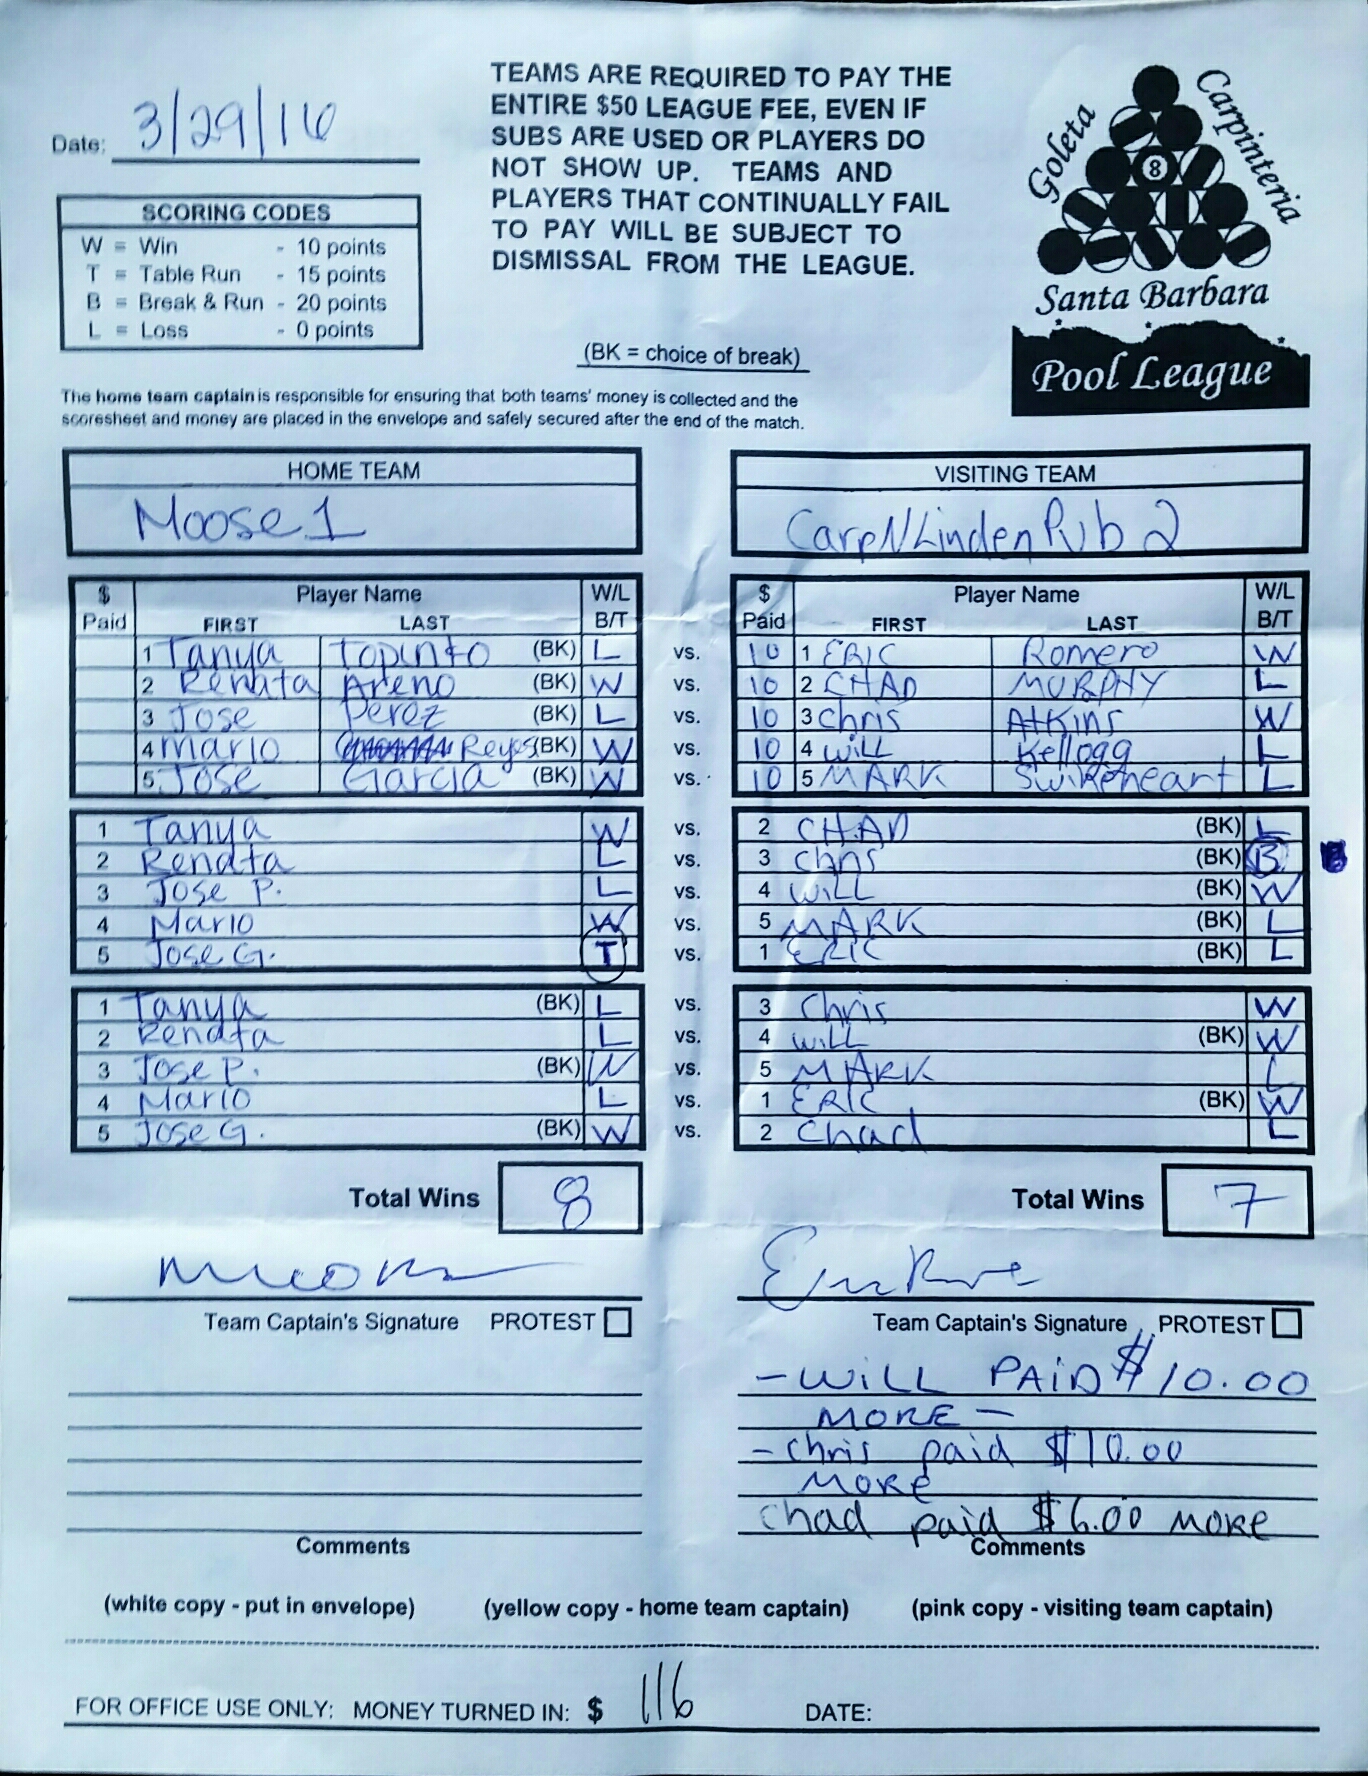 Date: 3/29/16
SCORING CODES
W = Win - 10 points
T = Table Run - 15 points
B = Break & Run - 20 points
L = Loss - 0 points
TEAMS ARE REQUIRED TO PAY THE
ENTIRE $50 LEAGUE FEE, EVEN IF
SUBS ARE USED OR PLAYERS DO
NOT SHOW UP. TEAMS AND
PLAYERS THAT CONTINUALLY FAIL
TO PAY WILL BE SUBJECT TO
DISMISSAL FROM THE LEAGUE.
(BK = choice of break)
Goleta
Carpinteria
8
Santa Barbara
Pool League
The home team captain is responsible for ensuring that both teams' money is collected and the
scoresheet and money are placed in the envelope and safely secured after the end of the match.
HOME TEAM VISITING TEAM
Moose 1 CarpNLinden Pub 2
$ Player Name W/L $ Player Name W/L
Paid FIRST LAST B/T Paid FIRST LAST B/T
1 Tanya Topinto (BK) L vs. 10 1 ERIC Romero W
2 Renata Areno (BK) W vs. 10 2 CHAD MURPHY L
3 Jose Perez (BK) L vs. 10 3 Chris Atkins W
4 Mario Reyes (BK) W vs. 10 4 WiLL Kellogg L
5 Jose Garcia (BK) W vs. 10 5 MARK Swikeheart L
1 Tanya W vs. 2 CHAD (BK) L
2 Renata L vs. 3 Chris (BK) B B
3 Jose P. L vs. 4 WiLL (BK) W
4 Mario W vs. 5 MARK (BK) L
5 Jose G. T vs. 1 ERIC (BK) L
1 Tanya (BK) L vs. 3 Chris W
2 Renata L vs. 4 WiLL (BK) W
3 Jose P. (BK) W vs. 5 MARK L
4 Mario L vs. 1 ERIC (BK) W
5 Jose G. (BK) W vs. 2 Chad L
Total Wins 8 Total Wins 7
Team Captain's Signature PROTEST Team Captain's Signature PROTEST
- WiLL PAiD $10.00
MORE -
- Chris paid $10.00
MORE
Chad paid $6.00 MORE
Comments Comments
(white copy - put in envelope) (yellow copy - home team captain) (pink copy - visiting team captain)
FOR OFFICE USE ONLY: MONEY TURNED IN: $ 116 DATE: